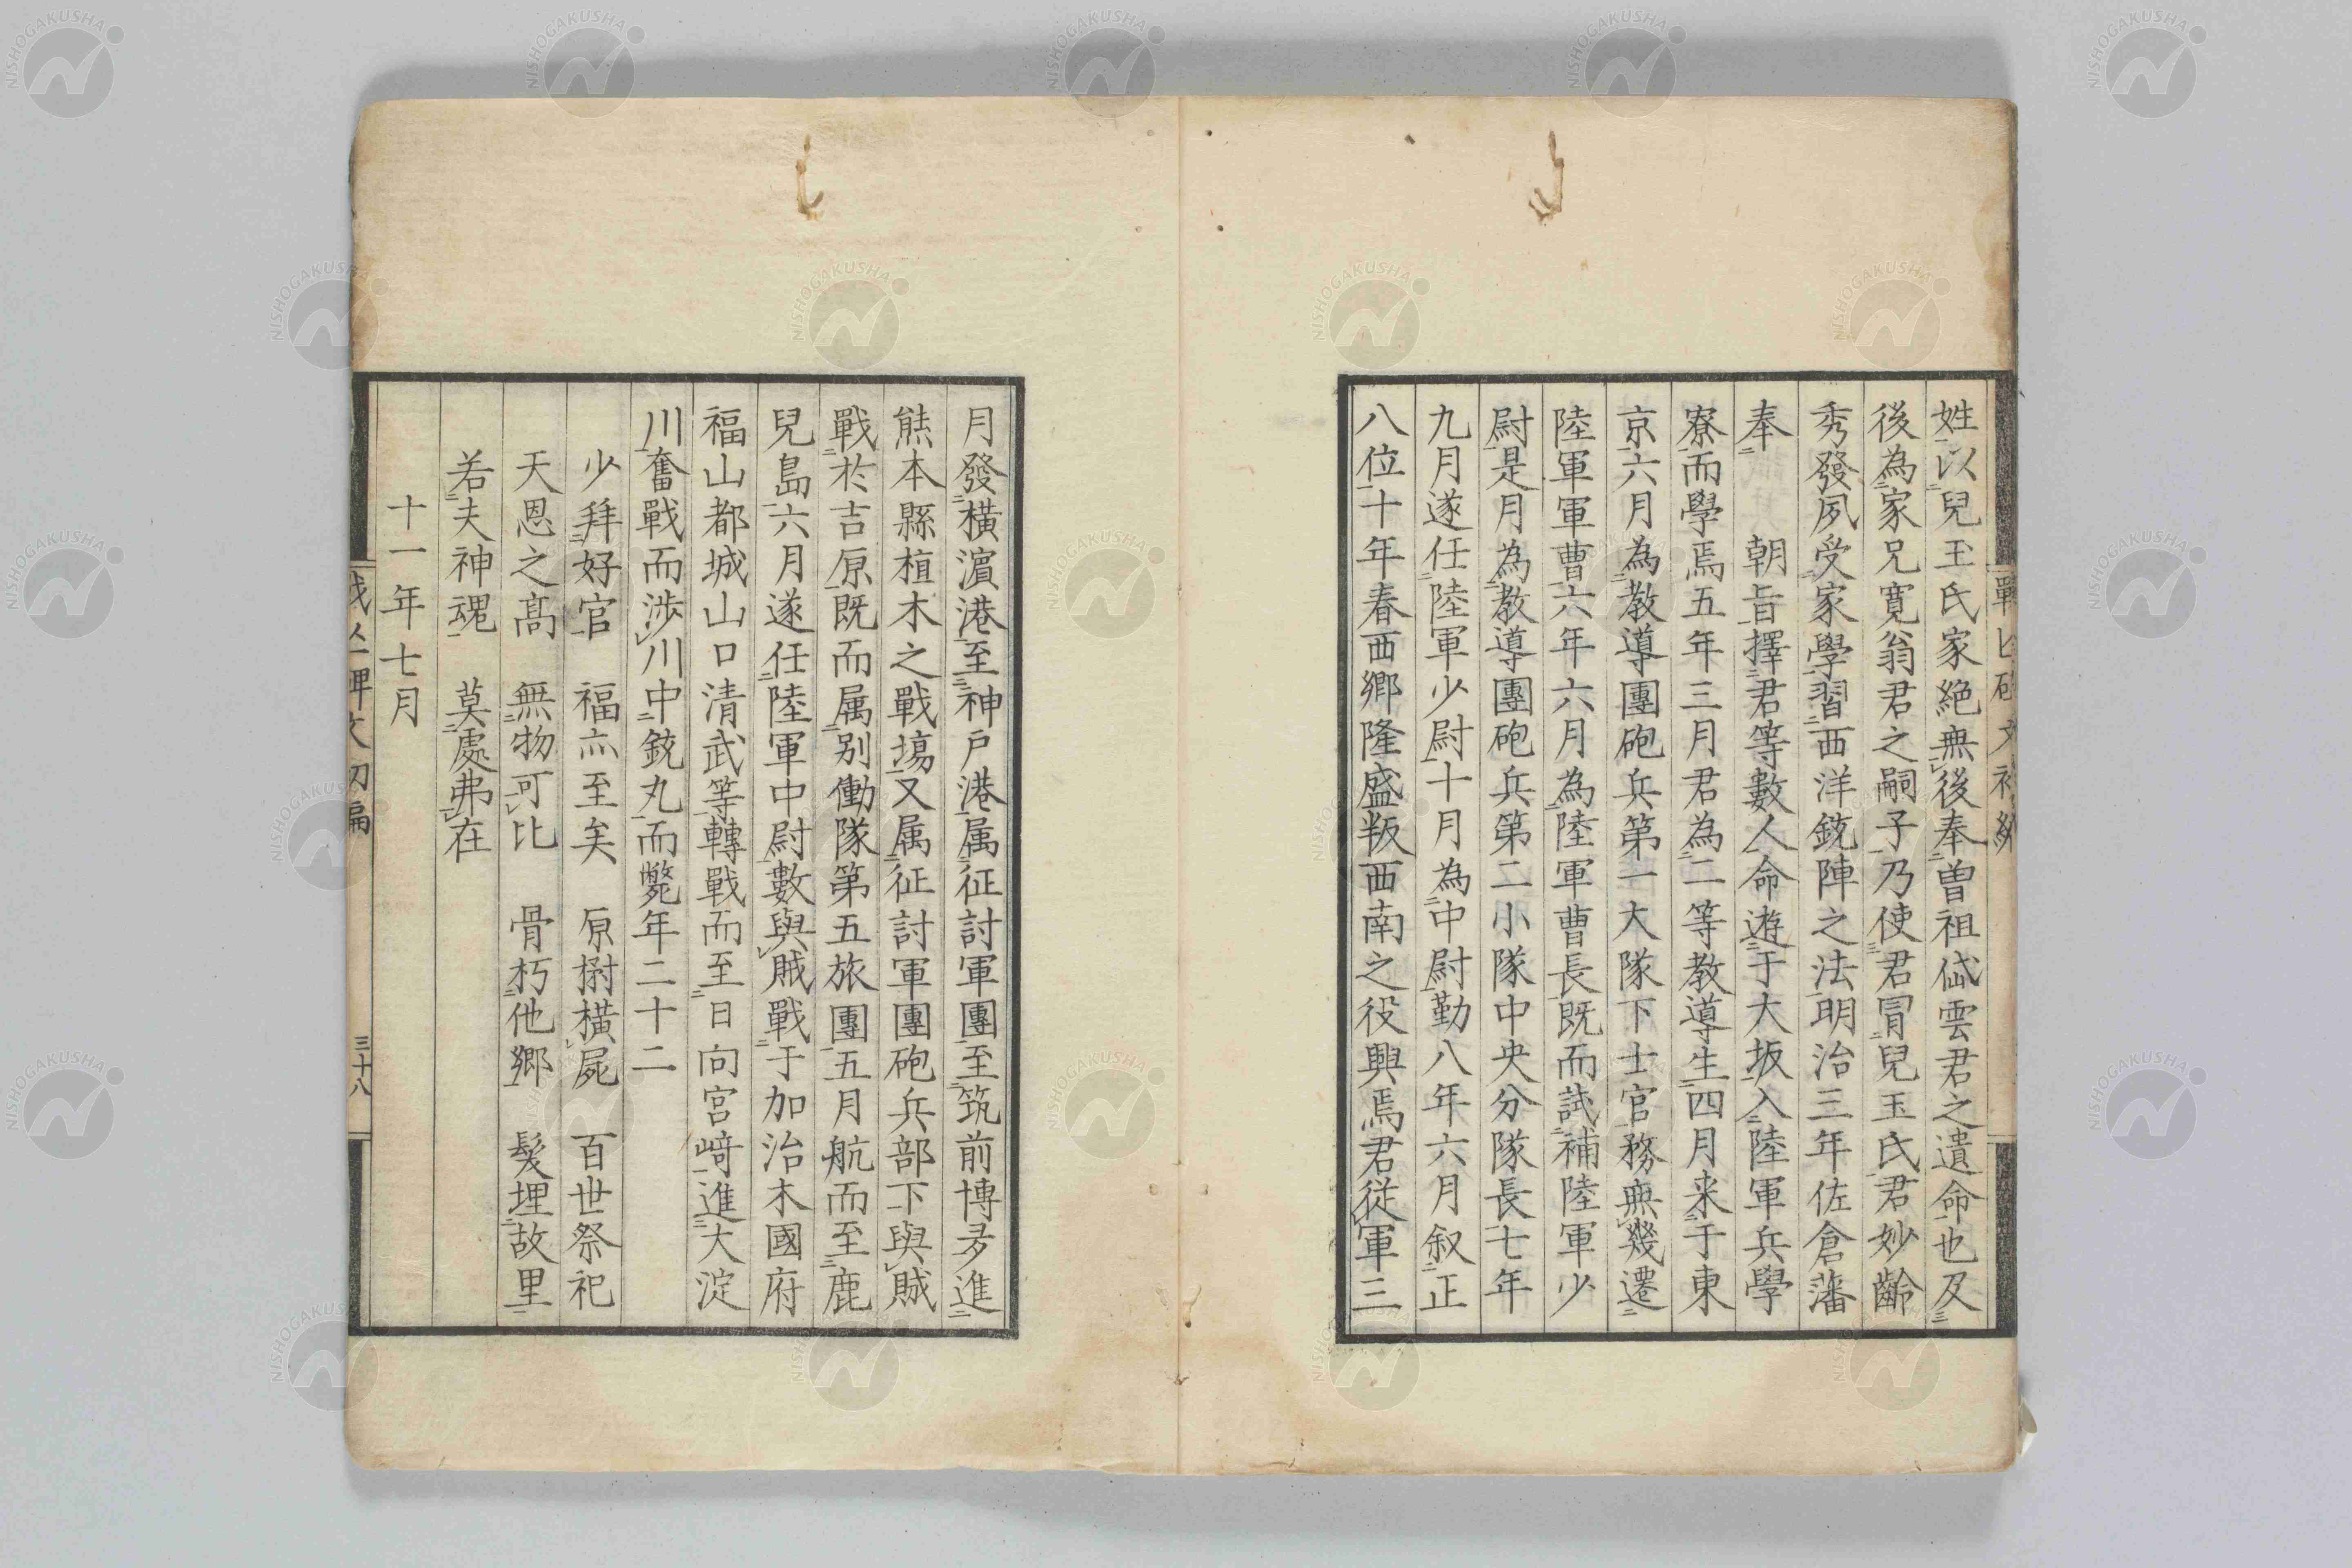 姓以兒玉氏家絶無後奉曽祖岱雲君之遺命也及
後為家兄寛翁君之嗣子乃使君冒兒玉氏君妙齡
秀發夙受家學習西洋銃陣之法明治三年佐倉藩
奉　朝旨擇君等數人命遊于大坂入陸軍兵學
寮而學焉五年三月君為二等教導生四月来于東
京六月為教導團砲兵第一大隊下士官務無幾遷
陸軍軍曹六年六月為陸軍曹長既而試補陸軍少
尉是月為教導團砲兵第二小隊中央分隊長七年
九月遂任陸軍少尉十月為中尉勤八年六月叙正
八位十年春西郷隆盛叛西南之役興焉君從軍三
月發横濵港至神戸港属征討軍團至筑前博多進
熊本縣植木之戰塲又属征討軍團砲兵部下與賊
戰於吉原既而属別働隊第五旅團五月航而至鹿
兒島六月遂任陸軍中尉數與賊戰于加治木國府
福山都城山口清武等轉戰而至日向宮﨑進大淀
川奮戰而渉川中銃丸而斃年二十二
少拜好官　福亦至矣　原掛横屍　百世祭祀
天恩之髙　無物可比　骨朽他郷　髮埋故里
若夫神魂　莫處弗在
十一年七月
三十八
NISHOGAKUSHA